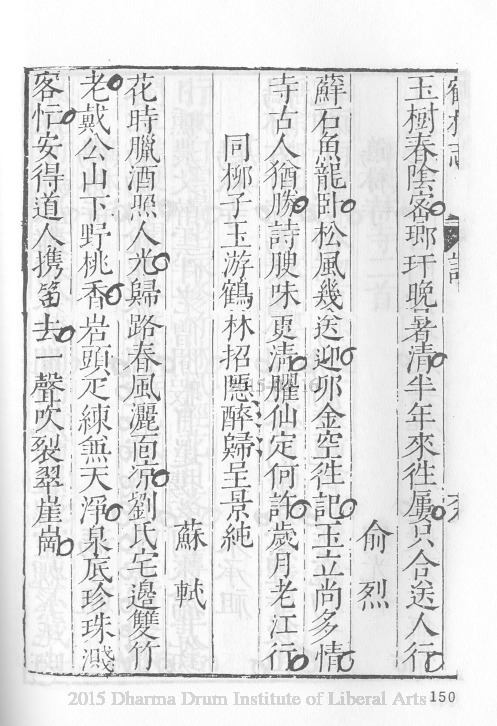 鶴林志 詩
玉樹春陰密瑯玕晚暑清半年來徃屢只合送人行
俞烈
蘚石魚龍卧松風幾送迎夘金空徃記玉立尚多情
寺古人猶勝詩腴味更清臞仙定何許歲月老江行
同栁子玉游鶴林招隱醉歸呈景純
蘇軾
花時臘酒照人光歸路春風灑面凉劉氏宅邊雙竹
老戴公山下野桃香岩頭疋練無天淨泉底珍珠濺
客忙安得道人携笛去一聲吹裂翠崖崗
150
2015 Dharma Drum Institute of Liberal Arts